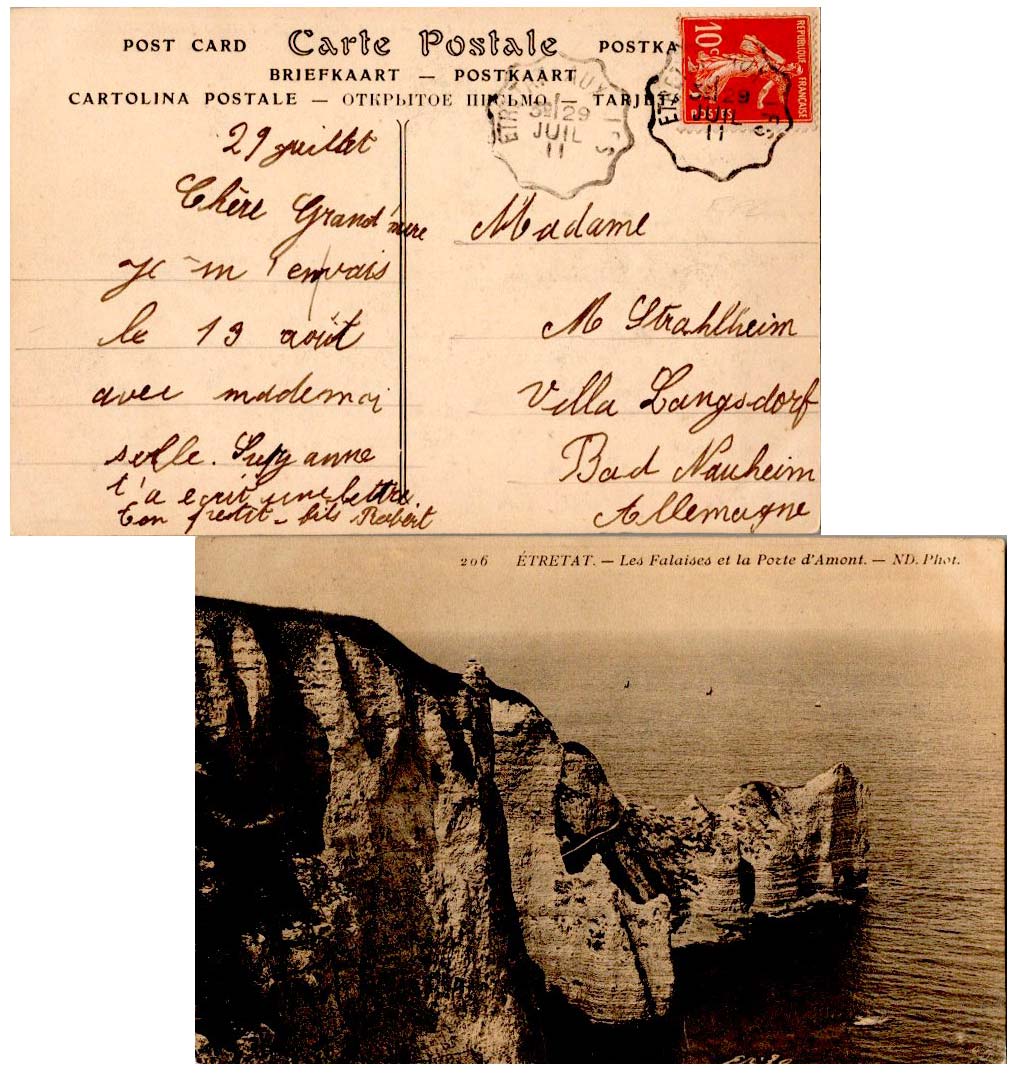 POST CARD Carte Postale POSTKA
BRIEFKAART — POSTKAART
CARTOLINA POSTALE — ОТКРЫТОЕ ПИСЬМО — TARJETA
REPUBLIQUE FRANÇAISE
10c
POSTES
29
JUIL
11
29
JUIL
11
29 juillet
Chère Grand'mère
je m'envais
le 19 août
avec mademoi
selle. Suzanne
t'a ecrit une lettre.
Ton petit-fils Robert
Madame
M Strahlheim
Villa Langsdorf
Bad Nauheim
Allemagne
206 ÉTRETAT. — Les Falaises et la Porte d'Amont. — ND. Phot.